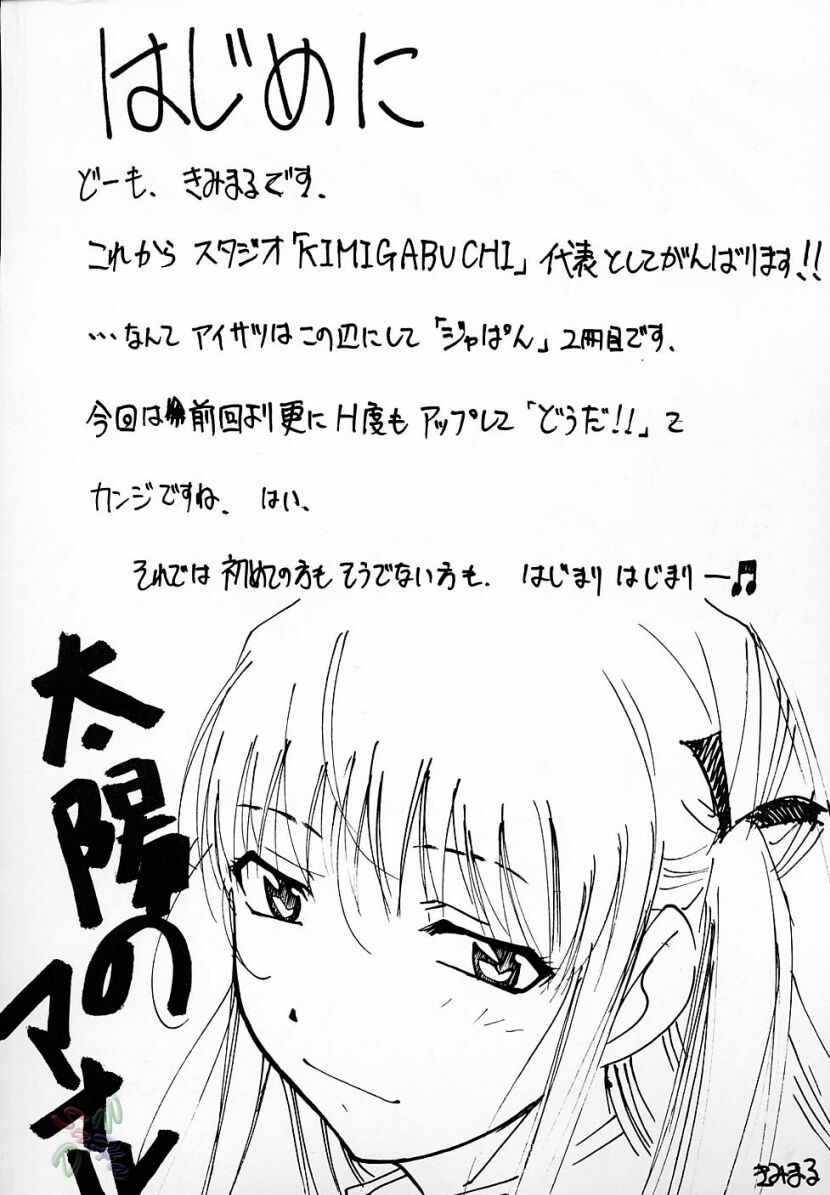 はじめに
どーも、きみまるです.
これから スタジオ「KIMIGABUCHI」代表としてがんばります!!
…なんて アイサツはこの辺にして「ジャぱん」2冊目です.
今回は前回より更に H度も アップして「どうだ!!」て
カンジですね、 はい、
それでは 初めての方も そうでない方も、 はじまり はじまりー♫
太陽の
マオル
きみまる